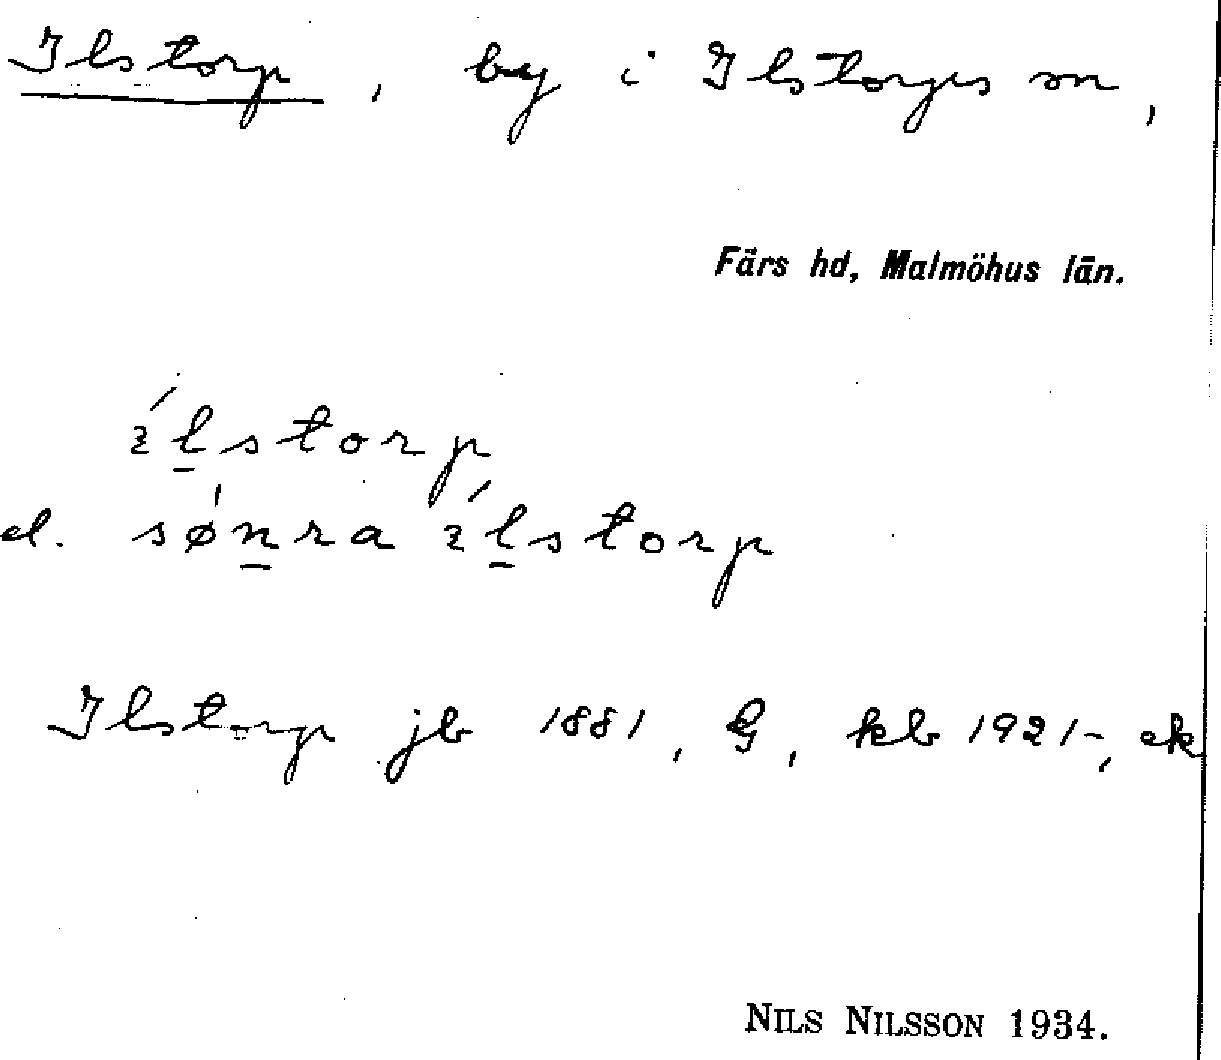 Ilstorp, by i Ilstorps sn,
Färs hd, Malmöhus län.
ílstorp
el. sønra ílstorp
Ilstorp jb 1881, G, kb 1921-, ek
NILS NILSSON 1934.